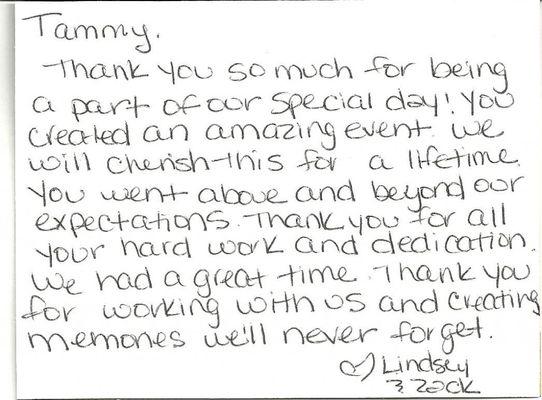 Tammy.
Thank you so much for being
a part of our special day! You
created an amazing event. We
will cherish this for a lifetime.
You went above and beyond our
expectations. Thank you for all
your hard work and dedication.
We had a great time. Thank you
for working with us and creating
memories we'll never forget.
♡ Lindsey
& Zack